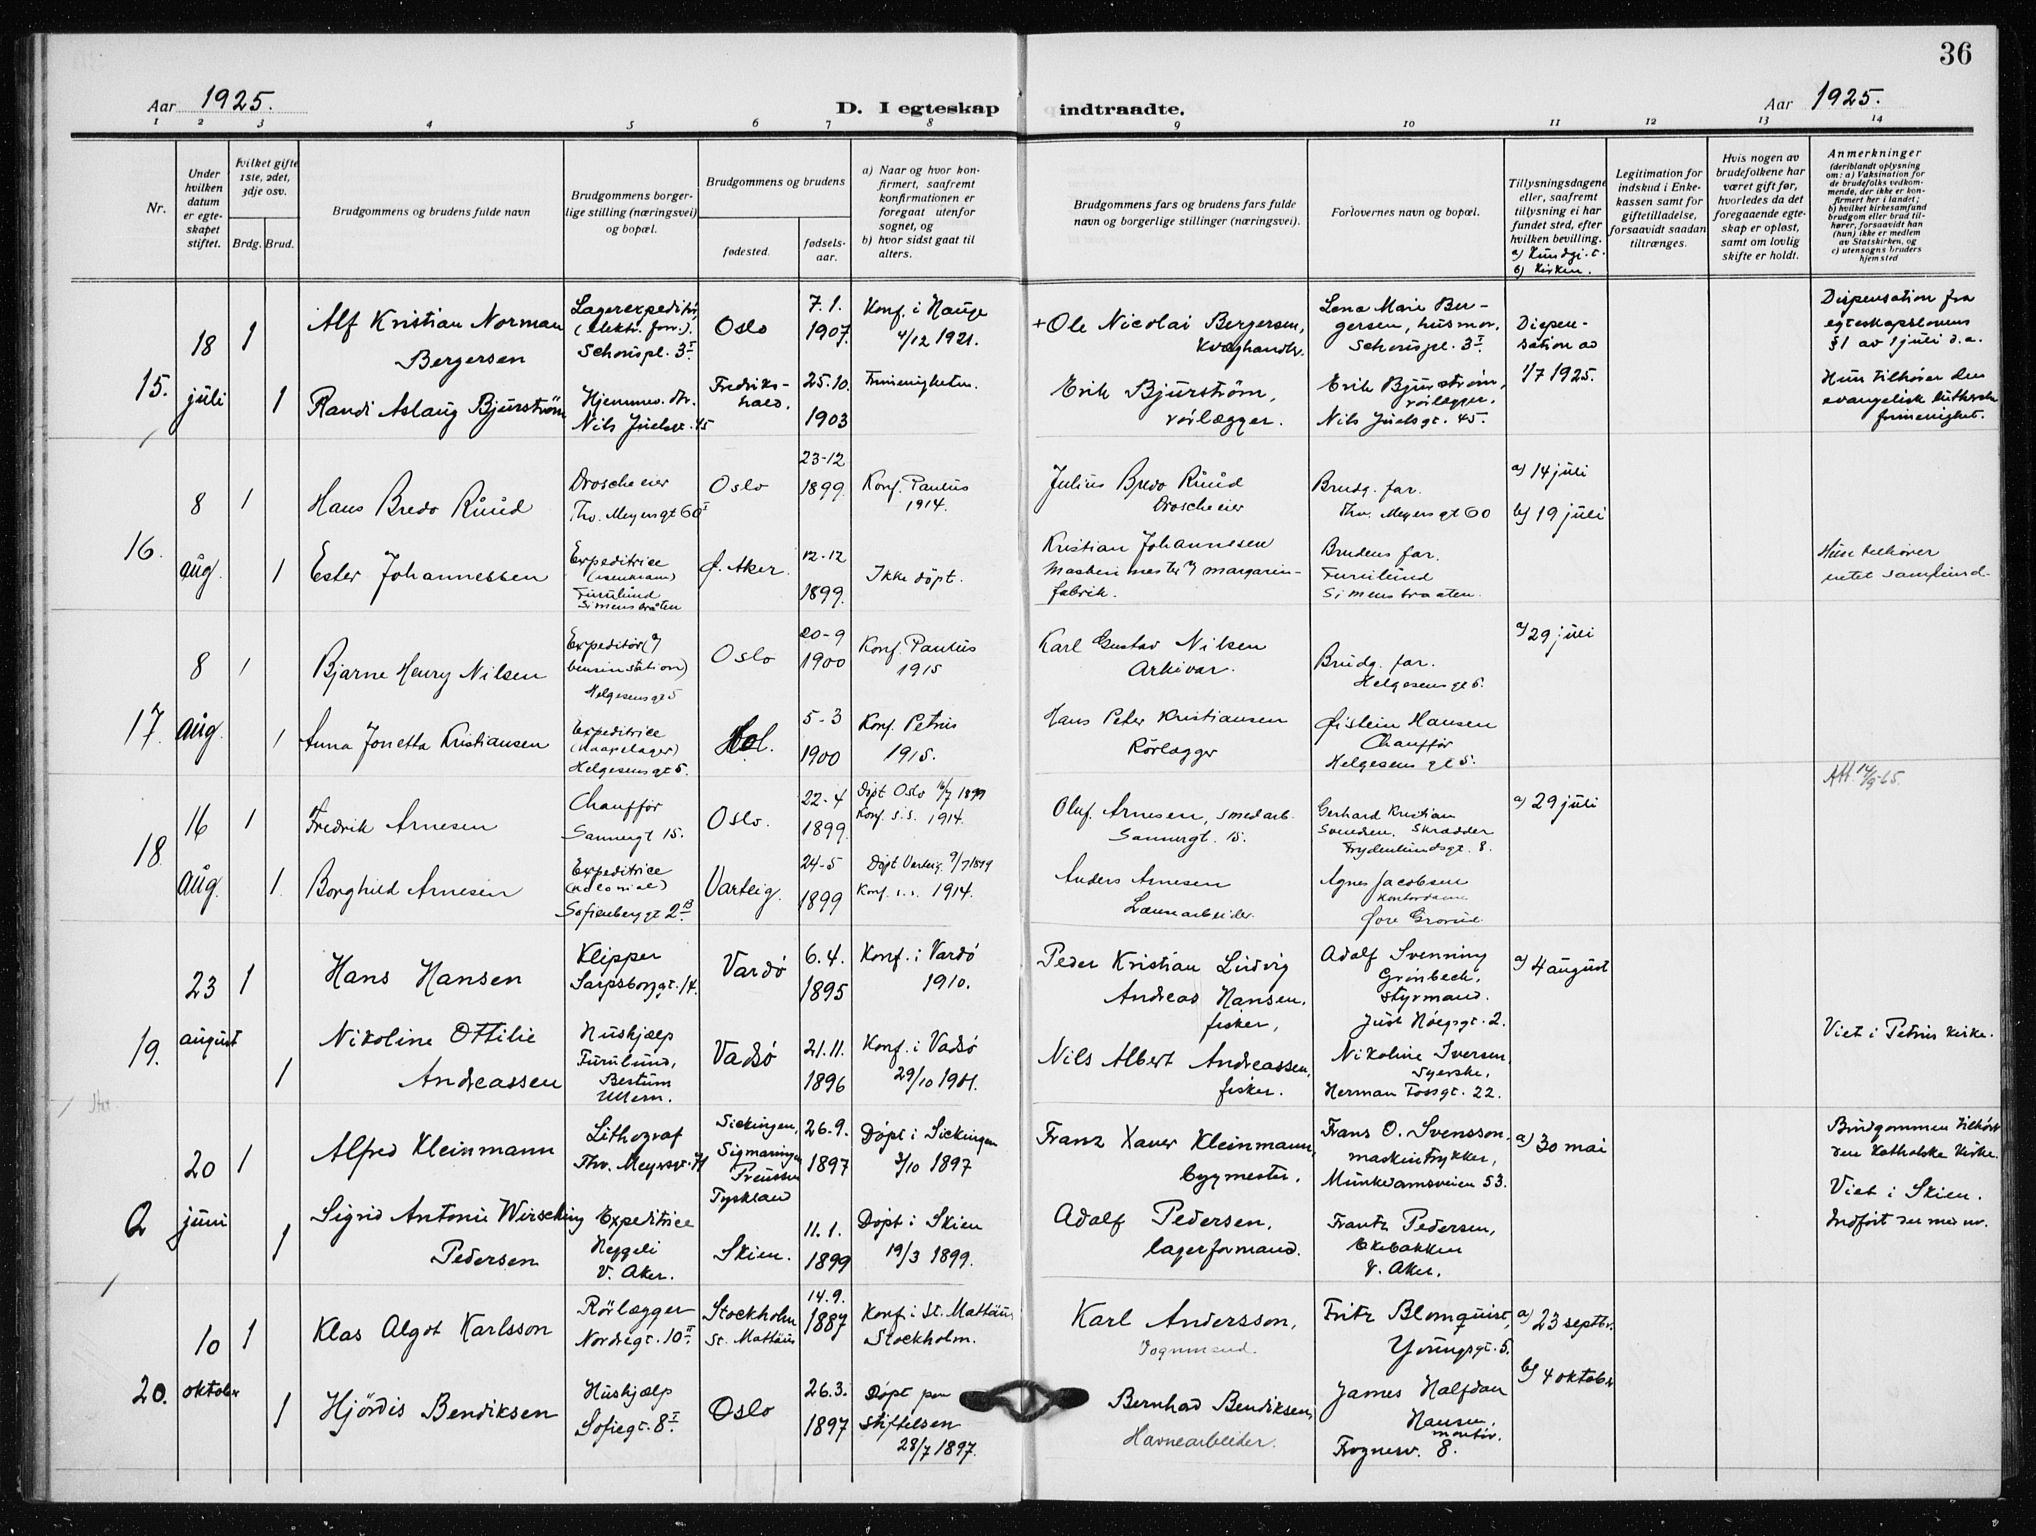 36
Aar 1925.
D. I egteskap indtraadte.
Aar 1925.
1 2 3 4 5 6 7 8 9 10 11 12 13 14
Nr.
Under hvilken datum er egteskapet stiftet.
Hvilket gifte 1ste, 2det, 3dje osv.
Brdg. Brud.
Brudgommens og brudens fulde navn
Brudgommens borgerlige stilling (næringsvei) og bopæl.
Brudgommens og brudens
fødested.
fødselsaar.
a) Naar og hvor konfirmert, saafremt konfirmationen er foregaat utenfor sognet, og
b) hvor sidst gaat til alters.
Brudgommens fars og brudens fars fulde navn og borgerlige stillinger (næringsvei).
Forlovernes navn og bopæl.
Tillysningsdagene eller, saafremt tillysning ei har fundet sted, efter hvilken bevilling.
b) Kirken.
Legitimation for indskud i Enkekassen samt for giftetilladelse, forsaavidt saadan tiltrænges.
Hvis nogen av brudefolkene har været gift før, hvorledes da det foregaaende egteskap er opløst, samt om lovlig skifte er holdt.
Anmerkninger
(deriblandt oplysning om: a) Vaksination for de brudefolks vedkommende, der ikke er konfirmert her i landet; b) hvilket kirkesamfund brudgom eller brud tilhører, forsaavidt han (hun) ikke er medlem av Statskirken, og c) utensogns bruders hjemsted
15.
18 juli
1
Alf Kristian Norman Bergersen
Lagerexpeditør
(elektr. forr.).
Schouspl. 3 I
Oslo
7.1. 1907.
Konf. i Hauge
4/12 1921.
+Ole Nicolai Bergersen,
Kvæghandlr.
Lena Marie Bergersen, husmor,
Schouspl. 3 I
Dispensation av
1/7 1925.
Dispensation fra
egteskapslovens
§1 av 1 juli d.a.
1
Randi Aslaug Bjurström
Hjemmev. dtr.
Nils Juelsgt. 45
Fredrikshald.
25.10. 1903
Frimenigheten.
Erik Bjurström,
rörlægger.
Erik Bjurström,
rörlægger.
Nils Juelsgt. 45.
Hun tilhører den
evangelisk lutherske
frimenighet.
16.
8 aug.
1
Hans Bredo Ruud
Droscheeier
Thv. Meyersgt 60 I
Oslo
23-12 1899
Konf. Paulus
1914.
Julius Bredo Ruud
Droscheeier
Brudg. far.
Thv. Meyersgt 60
a) 14 juli
b) 19 juli
1
Ester Johannessen
Expeditrice
Furulund
Simensbråten
Ø. Aker.
12-12 1899.
Ikke döpt.
Kristian Johannesen
Maskinmester v/ margarinfabrik.
Brudens far.
Furulund
Simensbraaten.
Hun tilhører
intet samfund.
17.
8 aug.
1
Bjarne Henry Nilsen
Expeditör (v/
bensinstation)
Helgesensgt 5
Oslo
20-9 1900
Konf. Paulus
1915
Karl Gustav Nilsen
Arkivar.
Brudg. far.
Helgesensgt 5.
a) 29 juli
1
Anna Jonetta Kristiansen
Expeditrice
(kaapelager)
Helgesensgt 5.
Hol.
5-3 1900
Konf. Petrus
1915.
Hans Peter Kristiansen
Rörlægger
Øistein Hansen
Chauffør
Helgesensgt 5.
18
16 aug.
1
Fredrik Arnesen
Chauffør
Sannergt 15.
Oslo.
22-4 1899
Döpt Oslo 16/7 1899
Konf. s.s. 1914.
Oluf Arnesen, smedarb.
Sannergt. 15.
Gerhard Kristian
Svendsen. Skrædder
Frydenlundsgt. 8.
a) 29 juli
Att 14/9-65.
1.
Borghild Arnesen
Expeditrice
(kolonial)
Sofienberggt 2 B
Varteig.
24-5 1899
Döpt Varteig 9/7 1899
Konf. s.s. 1914.
Anders Arnesen
Agnes Jacobsen
Kontordame
Øvre Grorud.
19.
23 august
1
Hans Hansen
Klipper
Sarpsborggt. 14.
Vardö
6.4. 1895
Konf. i Vardö
1910.
Peder Kristian Ludvig
Andreas Hansen,
fisker,
Adolf Svenning
Grönbech,
styrmand.
Just Höegsgt. 2.
a) 4 august
1
Nikoline Ottilie
Andreassen
Hushjælp
Furulund,
Bestum
Ullern.
Vadsö
21.11. 1896
Konf. i Vadsö
29/10 1911.
Nils Albert Andreassen,
fisker.
Nikoline Iversen,
syerske,
Herman Fossgt. 22.
Viet i Petrus kirke.
Q
20 juni
1
Alfred Kleinmann
Lithograf
Sickingen,
Sigmaringen
Preussen
Tyskland
26.9. 1897
Döpt i Sickingen
3/10 1897
Franz Xaver Kleinmann,
bygmester.
Frans O. Svensson,
maskintrykker,
Munkedamsveien 53.
a) 30 mai
Brudgommen tilhör
den katholske kirke.
Viet i Skien.
1
Sigrid Antonie Wirsching
Pedersen
Expeditrice
Heggeli
V. Aker.
Skien.
11.1. 1899
Döpt i Skien
19/3 1899.
Adolf Pedersen,
lagerformand.
Frantz Pedersen,
Ekebakken
V. Aker.
Indført her med nr.
20.
10 oktober
1
Klas Algot Karlsson
Rörlægger
Nordregt. 10 II
Stockholm
St. Mattäus
14.9. 1887
Konf. i St. Mattäus
Stockholm.
Karl Andersson,
Fritz Blomquist,
Youngsgt. 5.
a) 23 septbr.
b) 4 oktober
1
Hjördis Bendiksen
Hushjælp
Sofiegt. 8 I
Oslo
26.3. 1897
Döpt paa
Stiftelsen
28/7 1897.
Bernhard Bendiksen,
Havnearbeider.
James Halfdan
Hansen,
montör,
Frognerv. 8.